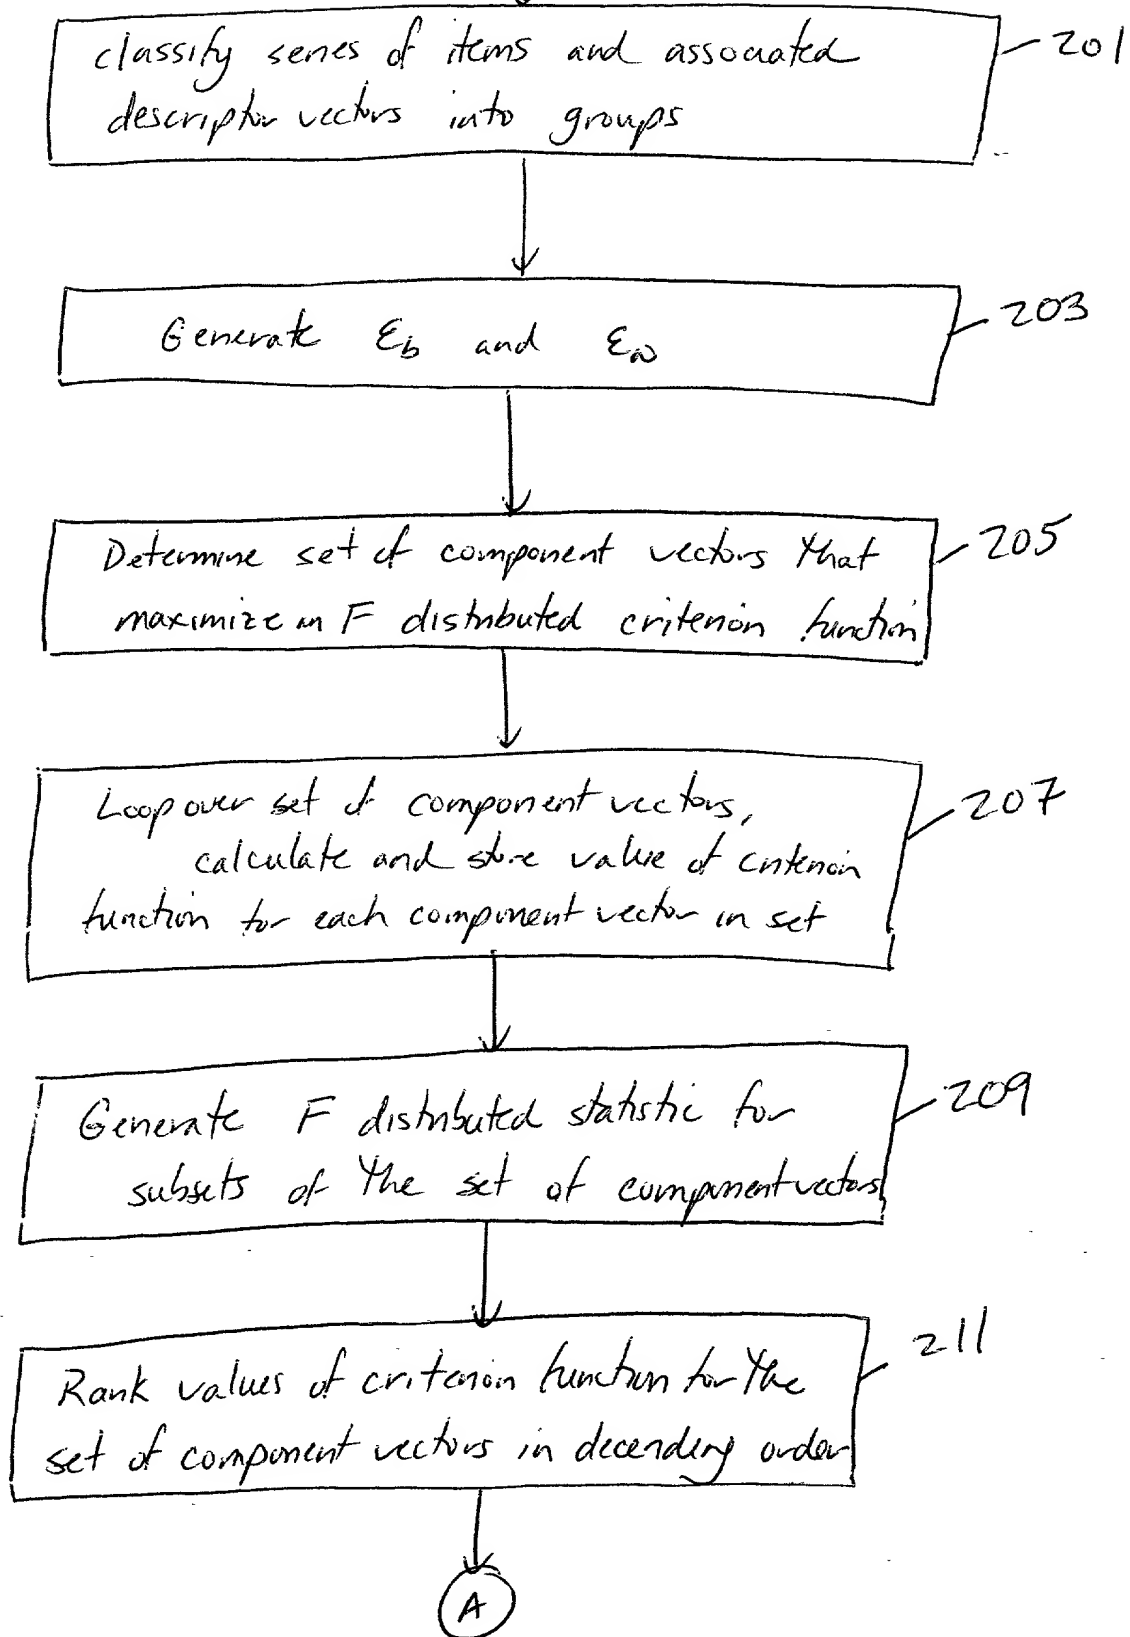 classify series of items and associated
201
descriptor vectors into groups
Generate Ɛb and Ɛω
203
Determine set of component vectors that
205
maximize an F distributed criterion function
Loop over set of component vectors,
207
calculate and store value of criterion
function for each component vector in set
Generate F distributed statistic for
209
subsets of the set of component vectors
Rank values of criterion function for the
211
set of component vectors in decending order
A